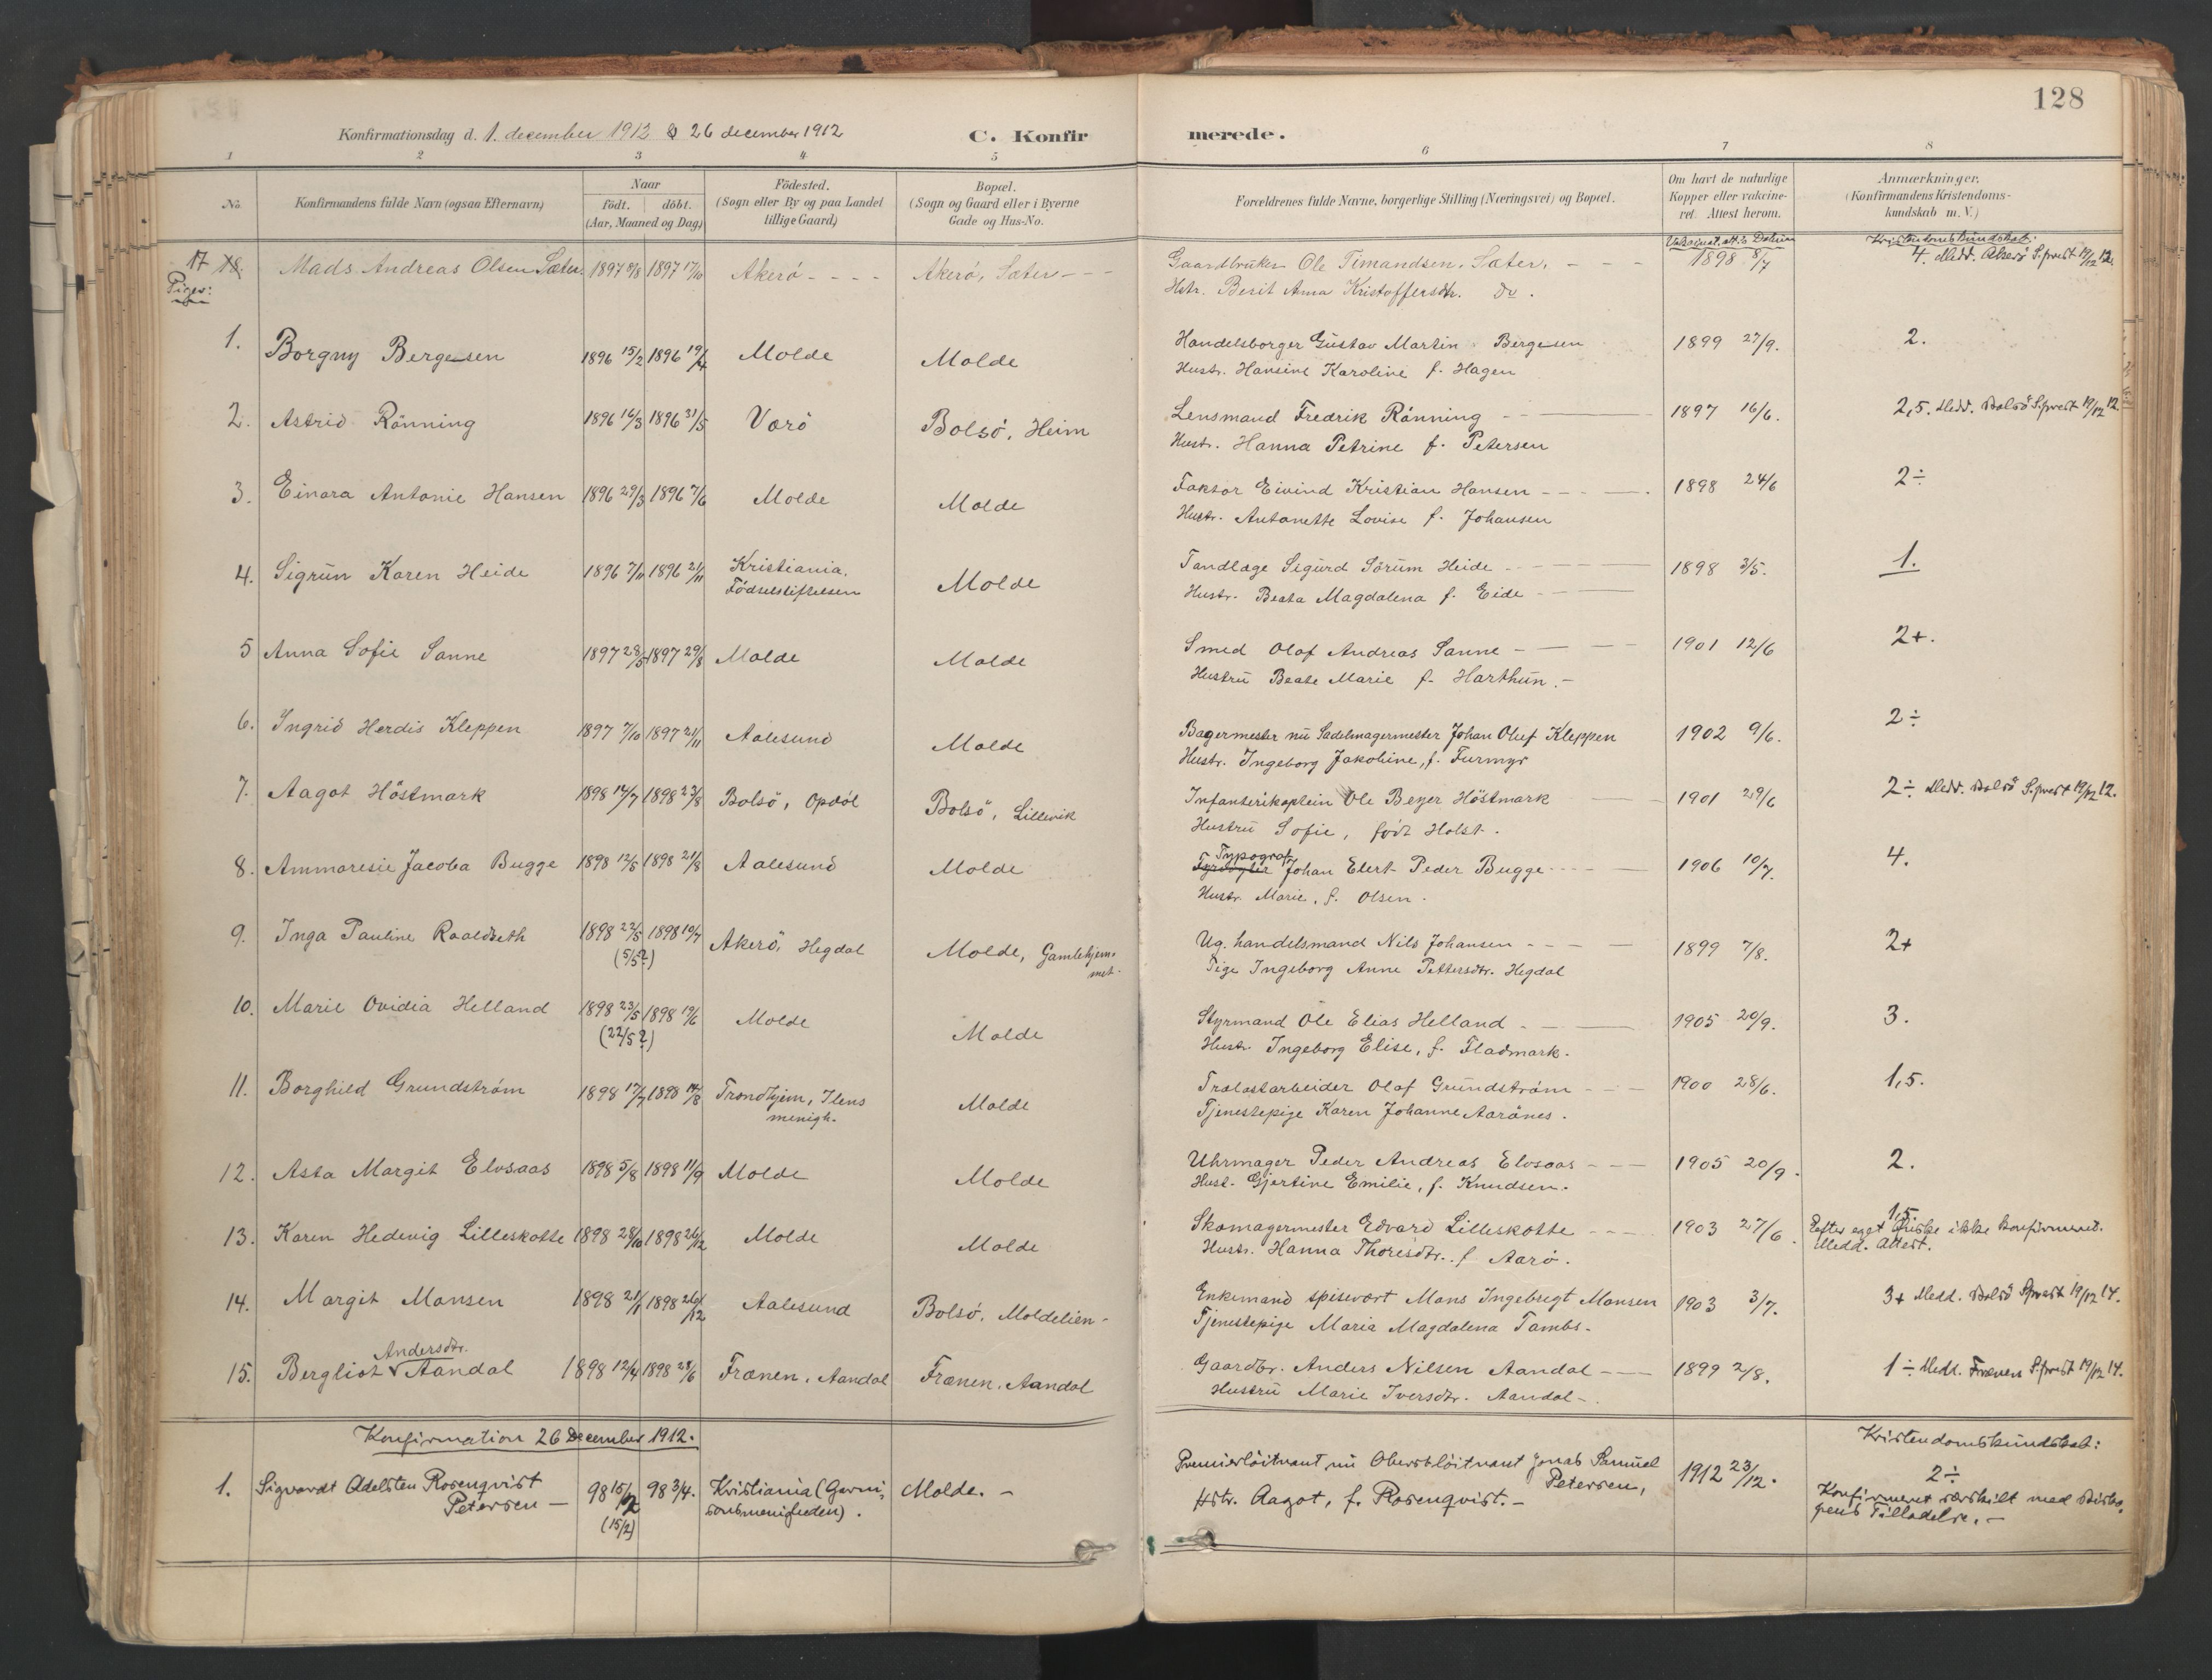 128
Konfirmationsdag d. 1. december 1912 & 26 december 1912 C. Konfirmerede.
1 2 3 4 5 6 7 8
No. Konfirmandens fulde Navn (ogsaa Efternavn) Naar født. døbt. (Aar, Maaned og Dag) Födested. (Sogn eller By og paa Landet tillige Gaard) Bopæl. (Sogn og Gaard eller i Byerne Gade og Hus-No. Forældrenes fulde Navne, borgerlige Stilling (Næringsvei) og Bopæl. Om havt de naturlige Kopper eller vakcineret. Attest herom. Anmærkninger. (Konfirmandens Kristendomskundskab m. V.)
Vaksinat. att.s Datum Kristendomskundskab:
17 18. Mads Andreas Olsen Sæter 1897 8/8 1897 17/10 Akerö Akerö, Sæter Gaardbruker Ole Timandsen, Sæter, 1898 8/7 4. Medd. Akerö S.prest 19/12 12.
Hstr. Berit Anna Kristoffersdtr. Do.
Piger:
1. Borgny Bergesen 1896 15/2 1896 19/4 Molde Molde Handelsborger Gustav Martin Bergesen 1899 27/9. 2.
Hustr. Hansine Karoline f. Hagen
2. Astrid Rönning 1896 16/3 1896 31/5 Værö Bolsö, Heim Lensmand Fredrik Rönning 1897 16/6. 2,5. Medd. Bolsö S.prest 19/12 12.
Hustr. Hanna Petrine f. Petersen
3. Einara Antonie Hansen 1896 29/3 1896 7/6 Molde Molde Faktor Eivind Kristian Hansen 1898 24/6 2÷
Hustr. Antonette Lovise f. Johansen
4. Sigrun Karen Heide 1896 7/11 1896 21/11 Kristiania. Fødselsstiftelsen Molde Tandlæge Sigurd Sörum Heide 1898 3/5. 1.
Hustr. Beata Magdalena f. Eide
5 Anna Sofie Sanne 1897 28/5 1897 29/8 Molde Molde Smed Olaf Andreas Sanne 1901 12/6 2+.
Hustru Beate Marie f. Harthun.
6. Ingrid Herdis Kleppen 1897 7/10 1897 21/11 Aalesund Molde Bagermester nu Sadelmagermester Johan Oluf Kleppen 1902 9/6. 2÷
Hustr. Ingeborg Jakobine, f. Furmyr
7. Aagot Höstmark 1898 14/7 1898 23/8 Bolsö, Opdöl Bolsö, Lillevik Infanterikaptein Ole Beyer Höstmark 1901 29/6 2÷ Medd. Bolsö S.prest 19/12 12.
Hustru Sofie, født Holst.
8. Ammaresie Jacoba Bugge 1898 12/5 1898 21/8 Aalesund Molde Typograf Johan Elert Peder Bugge 1906 10/7. 4.
Hustr. Marie, f. Olsen.
9. Inga Pauline Raaldseth 1898 22/5 (5/5?) 1898 10/7 Akerö, Hegdal Molde, Gamlehjemmet. Ug. handelsmand Nils Johansen 1899 7/8. 2+
Pige Ingeborg Anne Pettersdtr. Hegdal
10. Marie Ovidia Helland 1898 23/5 (22/5?) 1898 19/6 Molde Molde Styrmand Ole Elias Helland 1905 20/9. 3.
Hustr. Ingeborg Elise, f. Fladmark.
11. Borghild Grundström 1898 17/7 1898 14/8 Trondhjem, Ilens menigh. Molde Trælastarbeider Olaf Grundström 1900 28/6. 1,5.
Tjenestepige Karen Johanne Aarönes.
12. Asta Margit Elvsaas 1898 5/8 1898 11/9 Molde Molde Uhrmager Peder Andreas Elvsaas 1905 20/9. 2.
Hust. Gjertine Emilie, f. Knudsen.
13. Karen Hedevig Lilleskotte 1898 28/10 1898 26/12 Molde Molde Skomagermester Edvard Lilleskotte 1903 27/6. 1,5. Efter eget Ønske ikke konfirmeret. Medd. Attest.
Hustr. Hanna Thoresdtr. f. Aarö.
14. Margit Monsen 1898 21/1 1898 26/12 Aalesund Bolsö, Moldelien Enkemand spisevært Mons Ingebrigt Monsen 1903 3/7. 3+ Medd. Bolsö Sprest 19/12 14.
Tjenestepige Maria Magdalena Tambs.
15. Bergliot Andersdtr. Aandal 1898 12/4 1898 28/6 Frænen, Aandal Frænen, Aandal Gaardbr. Anders Nilsen Aandal 1899 2/8. 1÷ Medd. Frænen S.prest 19/12 14.
Hustru Marie Iversdtr. Aandal
Konfirmation 26 December 1912. Kristendomskundskab:
1. Sigvardt Adelsten Rosenqvist Petersen 98 15/2 (15/2) 98 3/4. Kristiania (Garnisonsmenigheden). Molde. Premierløitnant nu Oberstløitnant Jonas Samuel Petersen, 1912 23/12. 2÷
Hstr. Aagot, f. Rosenqvist. Konfirmeret særskilt med Biskopens Tilladelse.